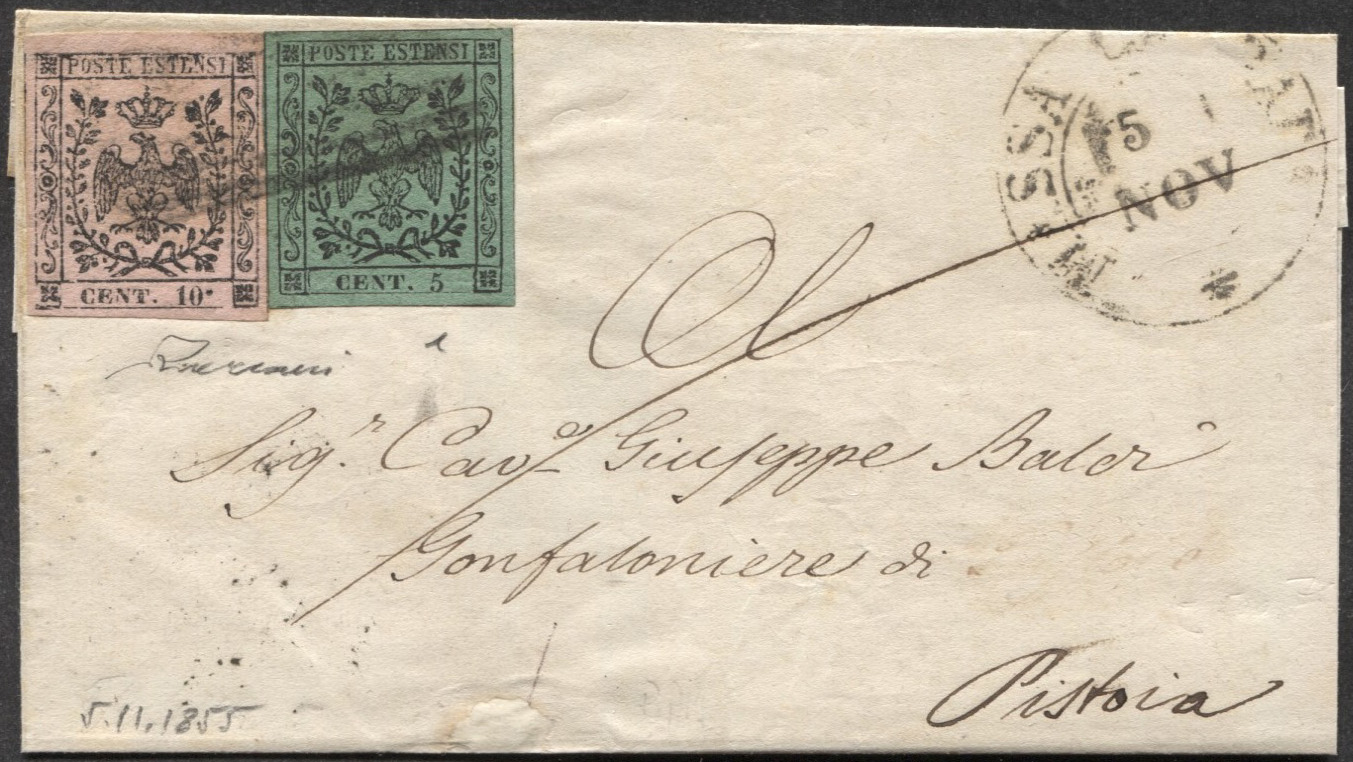 POSTE ESTENSI
CENT. 10.
POSTE ESTENSI
CENT. 5
MASSA CARRARA
5
NOV
Al
Sig.r Cav.e Giuseppe Baldi
Gonfaloniere di
Pistoia
5.11.1855